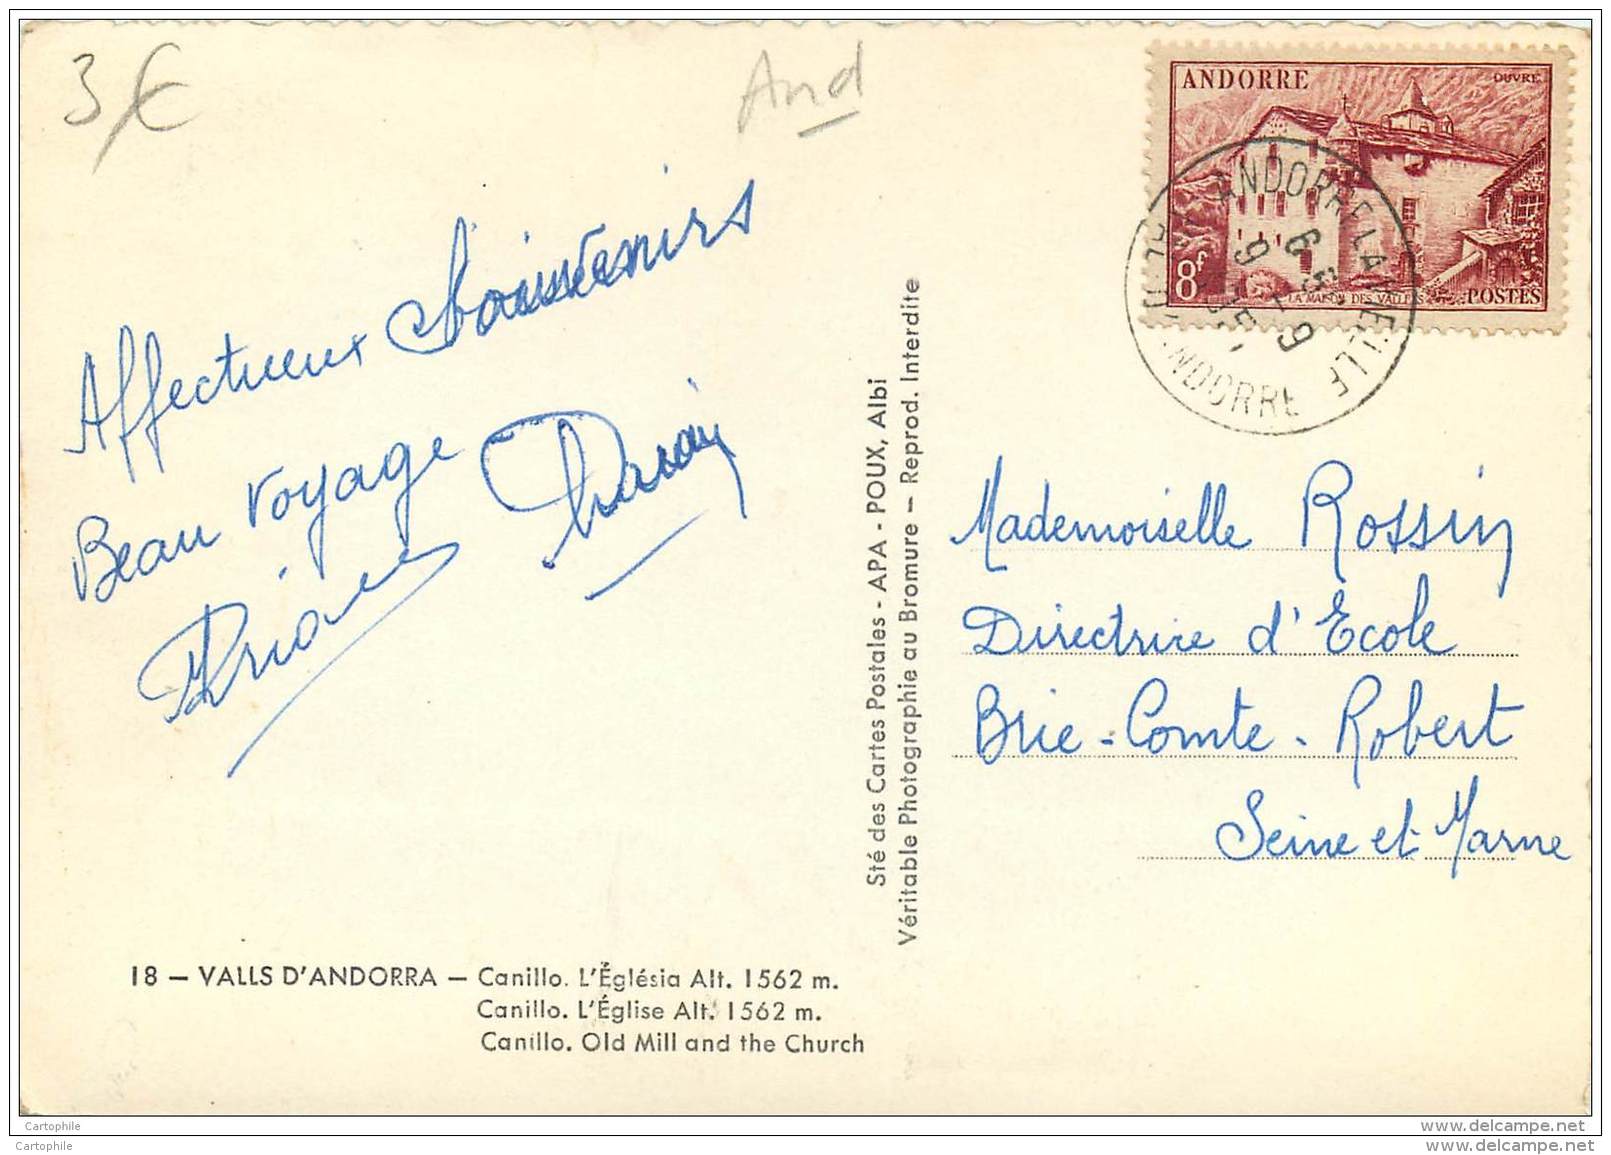 3 €
And
ANDORRE
OUVRÉ
8f
LA MAISON DES VALLÉES
POSTES
ANDORRE LA VIEILLE
ANDORRE
Affectueux Souvenirs
Beau voyage
Sté des Cartes Postales - APA - POUX, Albi
Véritable Photographie au Bromure — Reprod. Interdite
Mademoiselle Rossin
Directrice d'Ecole
Brie-Comte-Robert
Seine et Marne
18 — VALLS D'ANDORRA — Canillo. L'Églésia Alt. 1562 m.
Canillo. L'Église Alt. 1562 m.
Canillo. Old Mill and the Church
Cartophile
www.delcampe.net
Cartophile
www.delcampe.net